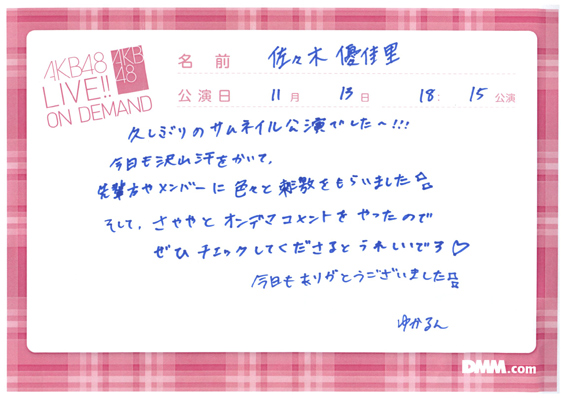 AKB48
LIVE!!
ON DEMAND
AKB48
名前 佐々木 優佳里
公演日 11月 13日 18:15公演
久しぶりのサムネイル公演でした〜!!!
今日も沢山汗をかいて、
先輩方やメンバーに色々と刺激をもらいました☆
そして、さややとオンデマコメントをやったので
ぜひチェックしてくださるとうれしいです♡
今日もありがとうございました☆
ゆかるん
DMM.com